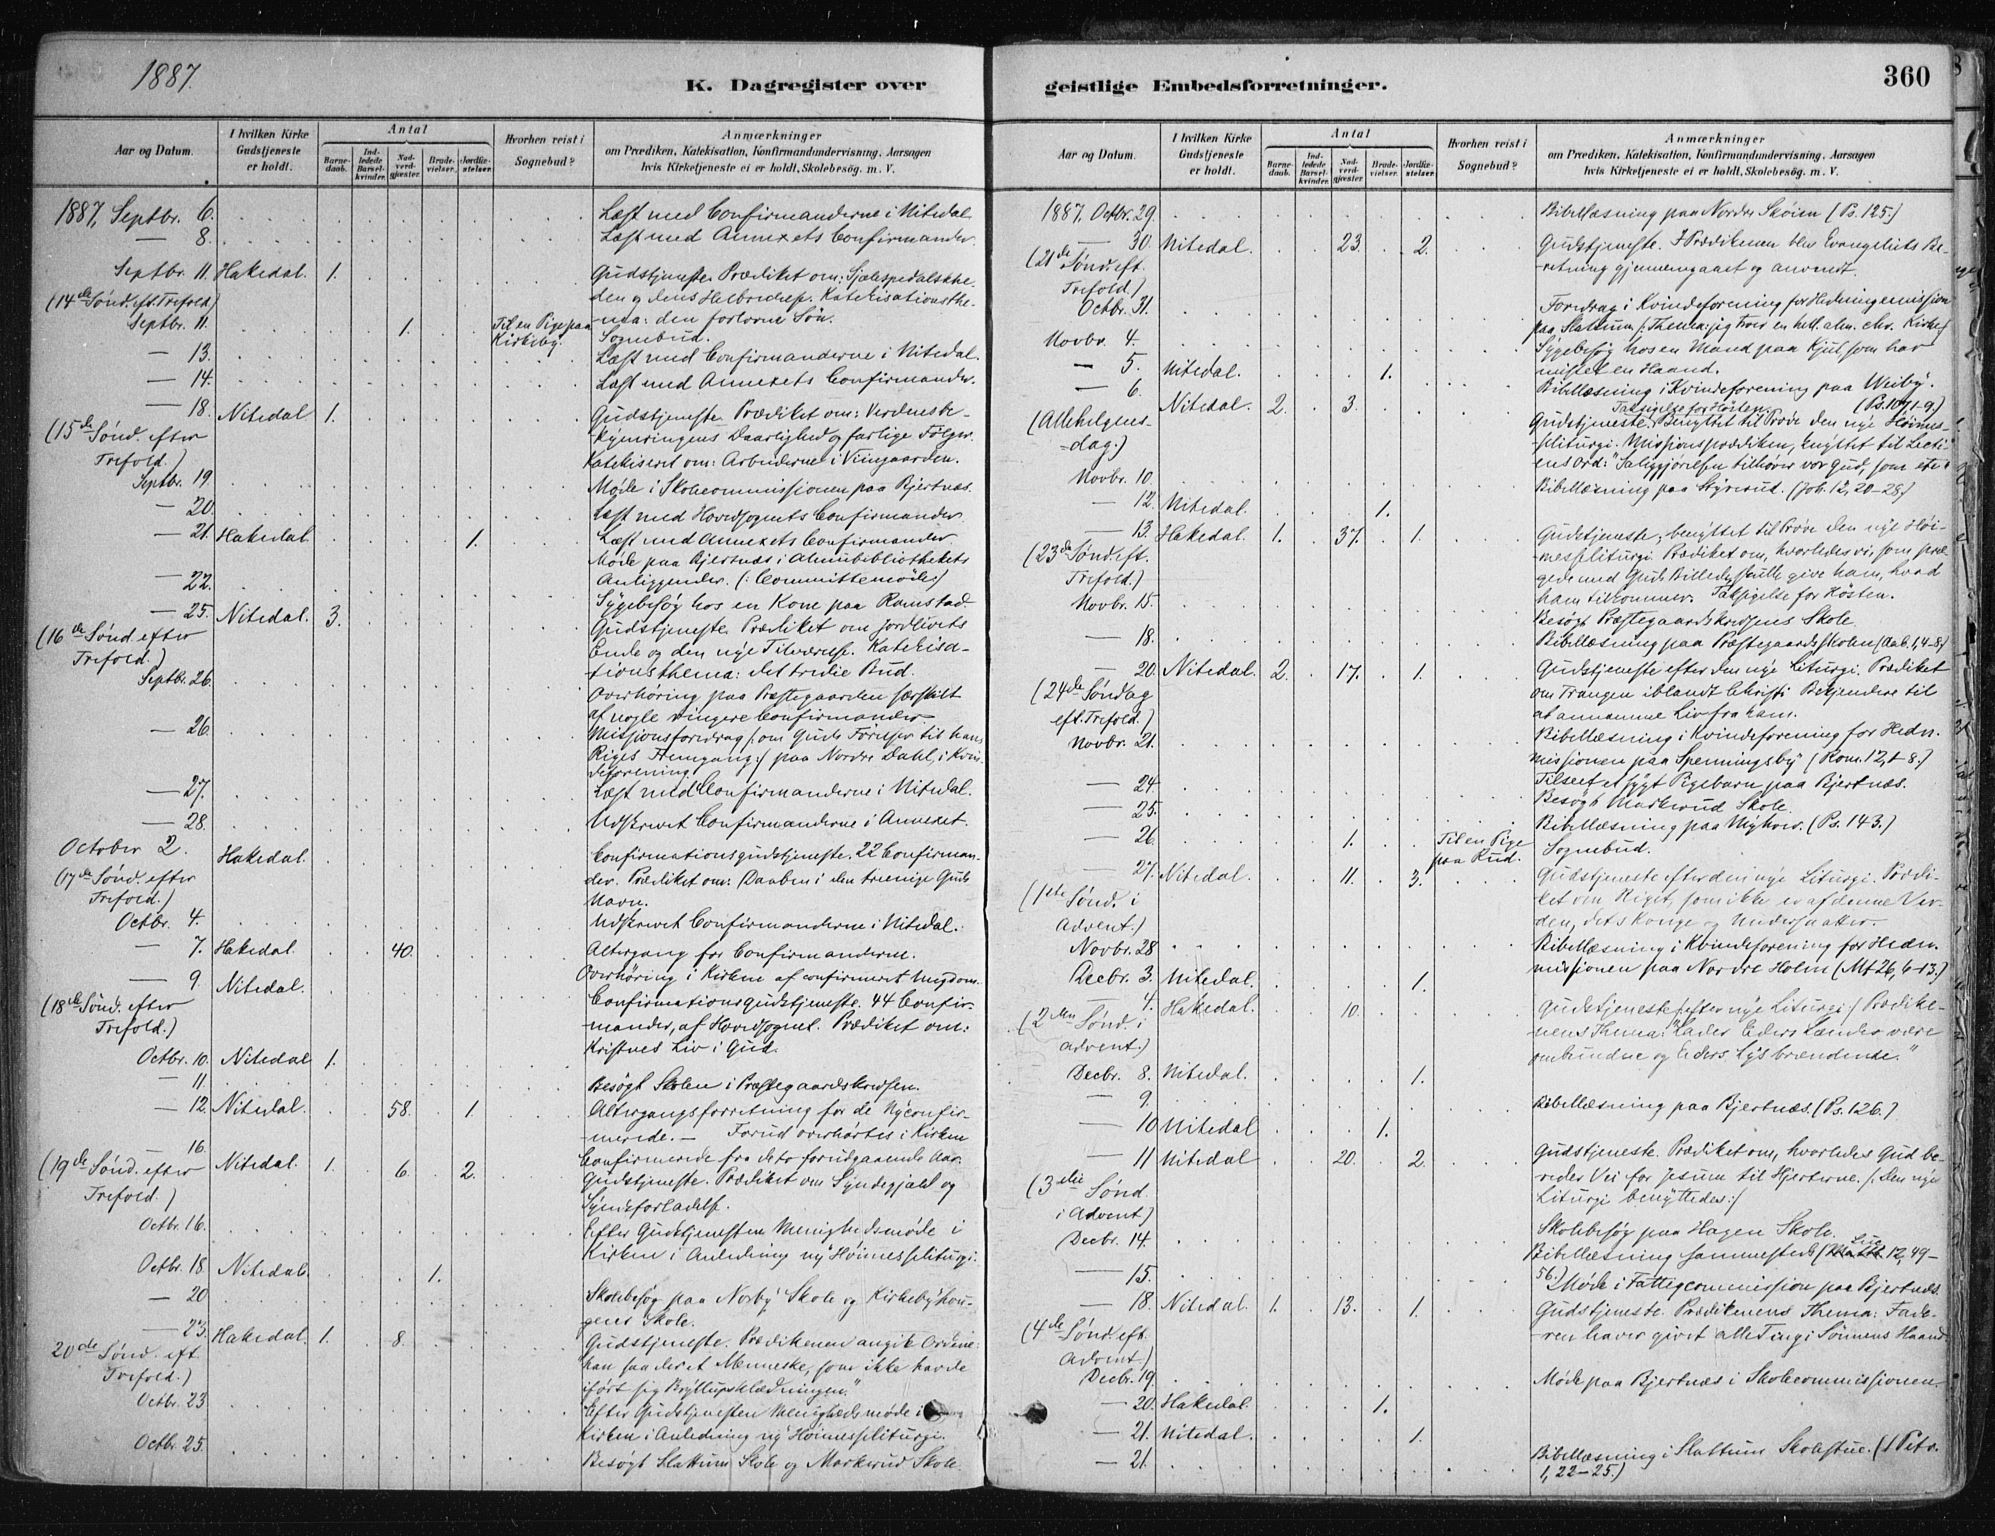 1887.
K. Dagregister over
Aar og Datum.
I hvilken Kirke Gudstjeneste er holdt.
Antal
Barnedaab.
Indledede Barselkvinder.
Nadverdgjæster.
Brudevielser.
Jordfæstelser.
Hvorhen reist i Sognebud?
Anmærkninger
om Prædiken, Katekisation, Konfirmandundervisning, Aarsagen
hvis Kirketjeneste ei er holdt, Skolebesøg. m. V.
1887, Septbr. 6. Læst med Confirmanderne i Nitedal
— 8. Læst med Annexets Confirmander.
Septbr. 11. Hakedal. 1. Gudstjeneste. Prædiket om: Sjælespedalskhe-
(14de Sønd. eft. Trefold.) den og dens Helbredelse. Katekisationsthe-
ma: den fortorne Søn.
Septbr. 11. 1. Til en Pige paa Kirkeby. Sognebud.
— 13. Læst med Confirmanderne i Nitedal.
— 14. Læst med Annexets Confirmander.
— 18. Nitedal 1. Gudstjeneste. Prædiket om: Verdensbe-
(15de Sønd. efter kymringens Daarlighed og farlige Følger.
Trefold.) Katekiseret om: Arbeiderne i Viingaarden.
Septbr. 19. Møde i Skolecommissionen paa Bjertnæs.
— 20. Læst med Hovedsognets Confirmander
— 21. Hakedal. 1. Læst med Annexets Confirmander
Møde paa Bjertnæs i Almuebibliothekets
Anliggender. (: Committemøde:)
— 22. Sygebesøg hos en Kone paa Ramstad.
— 25. Nitedal. 3. Gudstjeneste. Prædiket om Jordlivets
(16de Sønd. efter Ende og den nye Tilværelse. Katekisa-
Trefold.) tionsthema: det tredie Bud.
Septbr. 26. Overhøring paa Præstegaarden særskilt
af nogle ringere Confirmander.
— 26. Missionsforedrag (: om Guds Førelser til hans
Riges Fremgang:) paa Nordre Dahl, i Kvin-
deforening.
— 27. Læst med Confirmanderne i Nitedal.
— 28. Udskrevet Confirmanderne i Annexet.
October 2. Hakedal. Confirmationsgudstjeneste. 22 Confirman-
(17de Sønd. efter der. Prædiket om: Daaben i den treenige Guds
Trefold.) Navn.
Octbr. 4. Udskrevet Confirmanderne i Nitedal.
— 7. Hakedal. 40. Altergang for Confirmanderne.
Overhøring i Kirken af confirmeret Ungdom.
— 9. Nitedal. Confirmationsgudstjeneste. 44 Confir-
(18de Sønd. efter mander, af Hovedsognet. Prædiket om:
Trefold.) Kristnes Liv i Gud.
Octbr. 10. Nitedal 1.
— 11. Besøgt Skolen i Præstegaardskredsen.
— 12. Nitedal. 58. 1. Altergangsforretning for de Nyconfir-
merede. — Forud overhørtes i Kirken
Confirmerede fra dets foregaaende Aar.
— 16. Nitedal. 1. 6. 2. Gudstjeneste. Prædiket om Syndegjæld og
(19de Sønd. efter Trefold.) Syndeforladelse.
Octbr. 16. Efter Gudstjenesten Menighedsmøde i
Kirken i Anledning ny Høimesseliturgi.
Octbr. 18. Nitedal. 1.
— 20 Skolebesøg paa Norby Skole og Kirkebyhou-
gens Skole.
— 23. Hakedal. 1. 8. Gudstjeneste. Prædikenen angik Ordene:
20de Sønd. eft. "han saa der et Menneske, som ikke havde
Trefold.) iført sig Bryllupsklædningen."
Octbr. 23 Efter Gudstjenesten Menighedsmøde i
Kirken i Anledning ny Høimesseliturgi.
Octbr. 25. Besøgt Slattum Skole og Markerud Skole.
geistlige Embedsforretninger.
360
Aar og Datum.
I hvilken Kirke Gudstjeneste er holdt.
Antal
Barnedaab.
Indledede Barselkvinder.
Nadverdgjæster.
Brudevielser.
Jordfæstelser.
Hvorhen reist i Sognebud?
Anmærkninger
om Prædiken, Katekisation, Konfirmandundervisning, Aarsagen
hvis Kirketjeneste ei er holdt, Skolebesøg. m. V.
1887, Octbr. 29. Bibellæsning paa Nordre Skøien (Ps. 125.)
— 30. Nitedal. 23. 2. Gudstjeneste. I Prædikenen blev Evangeliets Be-
(21de Sønd. eft. Trefold.) retning gjennemgaaet og anvendt.
Octbr. 31. Foredrag i Kvindeforening for Hedningemission
paa Slattum (: Thema: jeg troer en hell. alm. chr. Kirke)
Novbr. 4. Sygebesøg hos en Mand paa Kjul, som har
mistet en Haand.
— 5. Nitedal. 1.
— 6. Bibellæsning i Kvindeforening paa Weiby.
(Ps. 107, 1-9.)
Nitedal. 2. 3. Taksigelse for Høsten.
(Allehelgens- Gudstjeneste. Benyttet til Prøve den nye Høimes-
dag.) seliturgi. Missionsprædiken, knyttet til Lecti-
ens Ord: "Saliggjørelsen tilhører vor Gud, som etc."
Novbr. 10. Bibellæsning paa Styrerud. (Joh. 12, 20-28.)
— 12. Nitedal. 1.
— 13. Hakedal. 1. 37. 1. Gudstjeneste; benyttet til Prøve den nye Høi-
(23de Sønd. eft. messeliturgi. Prædiket om, hvorledes vi, som præ-
Trefold.) gede med Guds Billede, skulle give ham, hvad
ham tilkommer. Taksigelse for Høsten.
Novbr. 15. Besøgt Præstegaardskredsens Skole.
— 18. Bibellæsning paa Præstegaardsskolen (Aab. 1, 4-8.)
— 20. Nitedal. 2. 17. 1. Gudstjeneste efter den nye Liturgi. Prædiket
(24de Søndag om Trangen iblandt Christi Bekjendere til
eft. Trefold.) at annamme Liv fra ham.
Novbr. 21. Bibellæsning i Kvindeforening for Hedn.
missionen paa Spenningsby (Rom. 12, 1-8.)
— 24. Tilseet et sygt Pigebarn paa Bjertnæs.
— 25. Besøgt Markerud Skole.
Bibellæsning paa Myhrer. (Ps. 143.)
— 26. 1. Til en Pige paa Rud. Sognebud.
— 27. Nitedal. 11. 3. Gudstjeneste efter den nye Liturgi. Prædi-
(1ste Sønd. i ket om Riget, som ikke er af denne Ver-
Advent.) den, dets Konge og Undersaatter.
Novbr. 28 Bibellæsning i Kvindeforening for Hedn.
missionen paa Nordre Holm (Mt 26, 6-13.)
Decbr. 3. Nitedal. 1.
— 4. Hakedal. 10. Gudstjeneste (efter nye Liturgi:) Prædike-
(2den Sønd. i nens Thema: "Lader Eders Lænder være
advent.) ombundne og Eders Lys brændende."
Decbr. 8. Nitedal. 1.
— 9. Bibellæsning paa Bjertnæs. (Ps. 126.)
— 10 Nitedal 1.
— 11 Nitedal 20. 2. Gudstjeneste. Prædiket om, hvorledes Gud be-
(3die Sønd. reder Vei for Jesum til Hjerterne. (: Den nye
i Advent) Liturgi benyttedes:)
Decbr. 14. Skolebesøg paa Hagen Skole.
Bibellæsning sammesteds (Luc. 12, 49-
56.)
— 15. Møde i Fattigcommission paa Bjertnæs.
— 18. Nitedal. 1. 13. 1. Gudstjeneste. Prædikenens Thema: Fade-
(4de Sønd. eft. ren haver givet alle Ting i Sønnens Haand
Advent.)
Decbr. 19. Møde paa Bjertnæs i Skolecommissionen.
— 20. Hakedal. 1.
— 21. Nitedal. 1.
— 21. Bibellæsning i Slattum Skolestue. (1 Petr.
1, 22-25.)